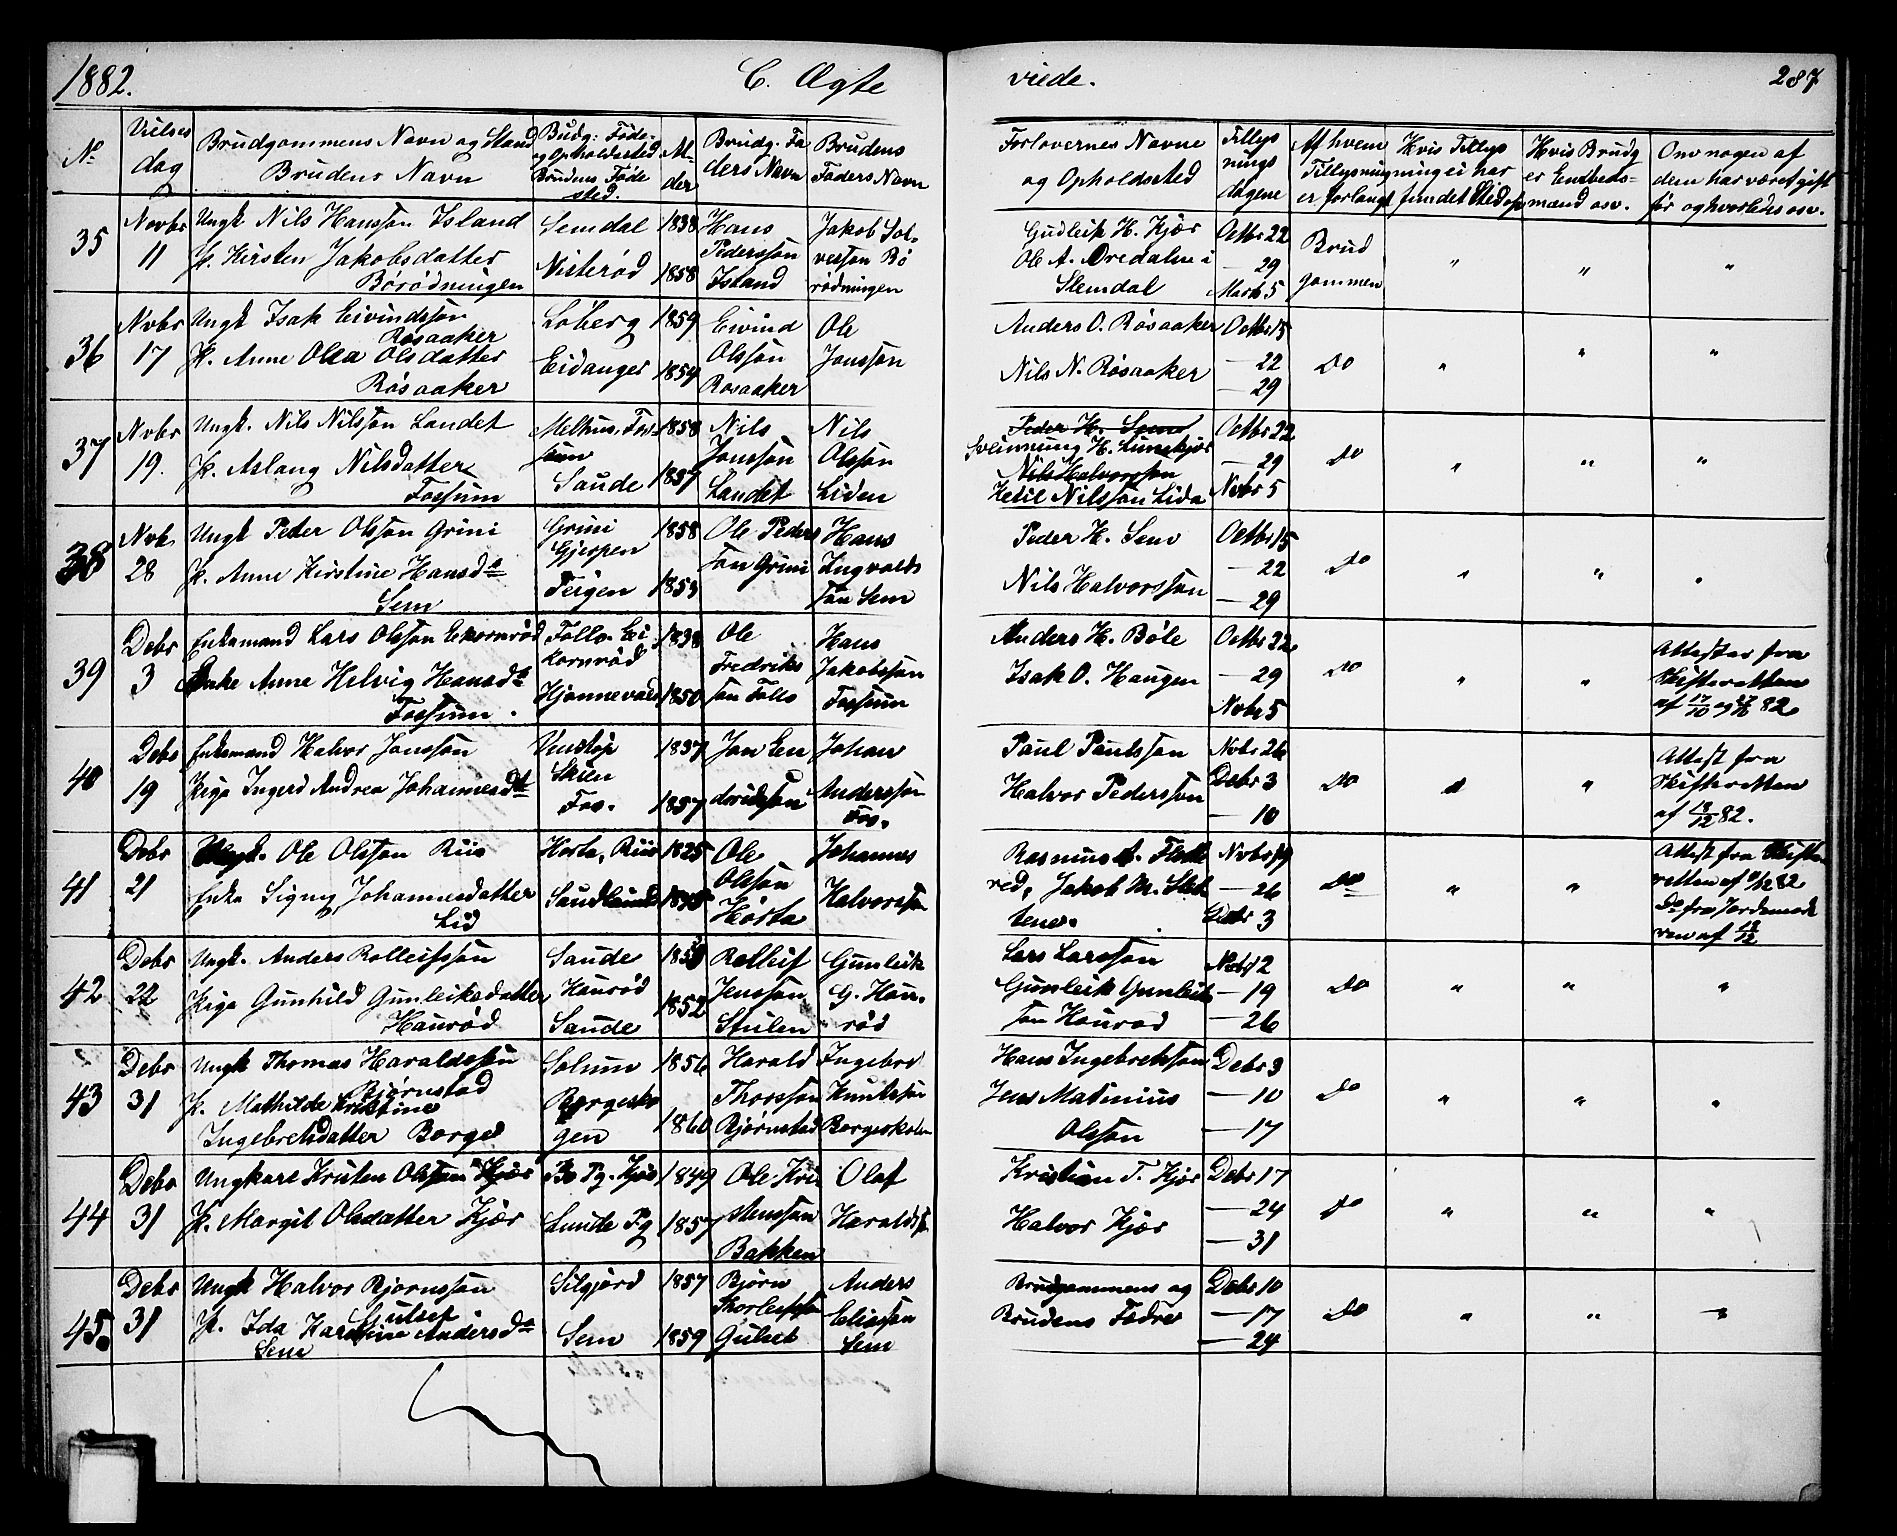 1882. C. Ægte viede. 287
No
Vielses dag
Brudgommens Navn og Stand
Brudens Navn
Budg: Føde- og Opholdssted
Brudens Føde sted.
Al- der
Brudg. Fa ders Navn
Brudens Faders Navn
Forlovernes Navne og Opholdssted
Tillys nings dagene
Af hvem Tillysning er forlangt
Hvis Tillys ning ei har fundet Sted op
Hvis Brudg er Enkeds- mand osv.
Om nogen af dem har været gift før og hvorledes osv.
35 Novbr 11
Ungk Nils Hansson Island
P. Kirsten Jakobsdatter
Børødningen
Semdal
Nisterød
1838
1858
Hans
Pedersson
Island
Jakob Sol-
vesson Bø
rødningen
Gudleik H. Kjær
Ole A. Øredalen i
Slemdal
Octbr 22
— 29
Brud
gommen
" " "
36 Nvbr 17
Ungk Isak Eivindsson
Røsaaker
P. Anne Olea Olsdatter
Røsaaker
Løberg
Eidanger
1859
1854
Eivind
Olsson
Rosaaker
Ole
Jonsson
Anders O. Røsaaker
Nils N. Røsaaker
Octbr 15
— 22
— 29
Do " " "
37 Nvbr 19.
Ungk. Nils Nilsson Landet
P. Aslaug Nilsdatter
Fossum
Melhus, Fos-
sum
Saude
1858
1857
Nils
Jonsson
Landet
Nil
Olsson
Liden
Peder H. Sem
Sveinnung H. Lunskjær
Nils Halvorsson
Ketil Nilsson Lida
Octbr 22
— 29
Nvbr 5
Do " " "
38 Nvb 28
Ungk Peder Olsson Grini
P. Anne Kirstine Hansd.
Sem
Grini
Gjerpen
Teigen
1858
1853
Ole Peders
son Grini
Hans
Ingvalds
son Sem
Peder H. Sem
Nils Halvorsson
Octbr 15
— 22
— 29
Do " " "
39 Debr 3
Enkemand Lars Olsson Eikornrød
Enke Anne Helvig Hansd.
Fossum.
Follo. Ei
kornrød
1838
1850
Ole
Fredriks
son Follo
Hans
Jakobsson
Fossum
Anders H. Bøle
Isak O. Haugen
Octbr 22
— 29
Nvbr 5
Do " "
Attester fra
Skifteretten
40 Debr 19
Enkemand Halvor Jonsson
Pige Ingerd Andrea Johannesdtr
Venstøp
Skien
Fos.
1837
1857
Jon Een
dridsson
Johan
Andersson
Fos.
Paul Paulsson
Halvor Pedersson
Nvbr 26
Debr 3
— 10
Do " "
Attest fra
Skifteretten
af 18/12 82.
41 Debr 21
Ungk. Ole Olsson Riis
Enke Signy Johannesdatter
Lid
Hørta, Riis
1825
Ole
Olsson
Hørta
Johannes
Halvorsson
Nvbr 19
— 26
Debr 3
Do " "
Attest fra Skifte
retten af 11/12 82
Do fra Jordemod
42 Debr 22
Ungk. Anders Rolleifsson
Pige Gunhild Gunleiksdatter
Haurød
Saude
Haurød
Saude
1852
Rolleif
Jensson
Stulen
Gunleik
G. Hau-
rød
Lars Larsson
Gunleik Gunleik
son Haurød
Nvbr 12
— 19
— 26
Do " " "
43 Debr 31
Ungk Thomas Haraldssøn
Bjørnstad
P. Mathilde Kristine
Ingebretsdatter Borge
Solum
Borgesko
gen
1856
1860
Harald
Thorsson
Bjørnstad
Ingebret
Knutsson
Borgeskoen
Hans Ingebretsson
Jens Matinius
Olsson
Debr 3
— 10
— 17
Do " " "
44 Debr 31
Ungkarl Kristen Olsson Kjær
P. Margit Olsdatter Kjær
Bø Pg. Kjær
Lunde Pg
1849
1857
Ole Kri
stensson
Bakken
Olaf
Haralds
Kristian T. Kjær
Halvor Kjær
Debr 17
— 24
— 31
Do " " "
45. Debr 31
Ungk Halvor Bjørnsson
Gulset
P. Ida Karoline Andersd.
Sem
Silgjord
Sem
1857
1859
Bjørn
Thorleifsson
Gulset
Anders
Eliasson
Sem
Brudgommens og
Brudens Fædre
Debr 10
— 17
— 24
Do " " "